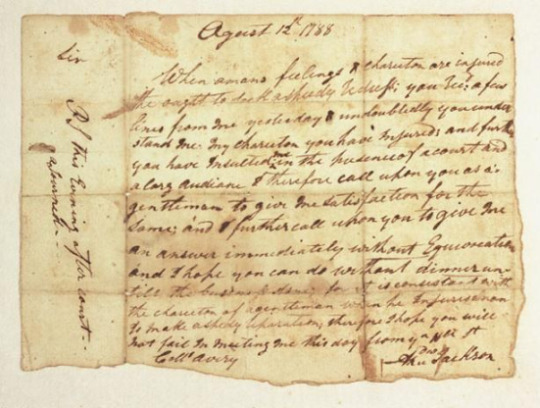 Agust 12th 1788
Sir
When amans feelings & charector are injured
he ought to seek aspeedy redress; you recd. a few
lines from me yesterday & undoubtedly you under
stand me. My charector you have Injured; and further
you have Insulted me in the presence of a court and
a larg audianc I therefore call upon you as a
gentleman to give me satisfaction for the
Same; and I further call upon you to give me
an answer immediately without Equivocation
and I hope you can do without dinner un
till the business done; for it is consistant with
the charector of agentleman when he Injures a man
to make aspedy reparation; therefore I hope you will
not fail in meeting me this day from yr. Hbl st
Collo. Avery
Jackson
PS this Evning after court
adjourned